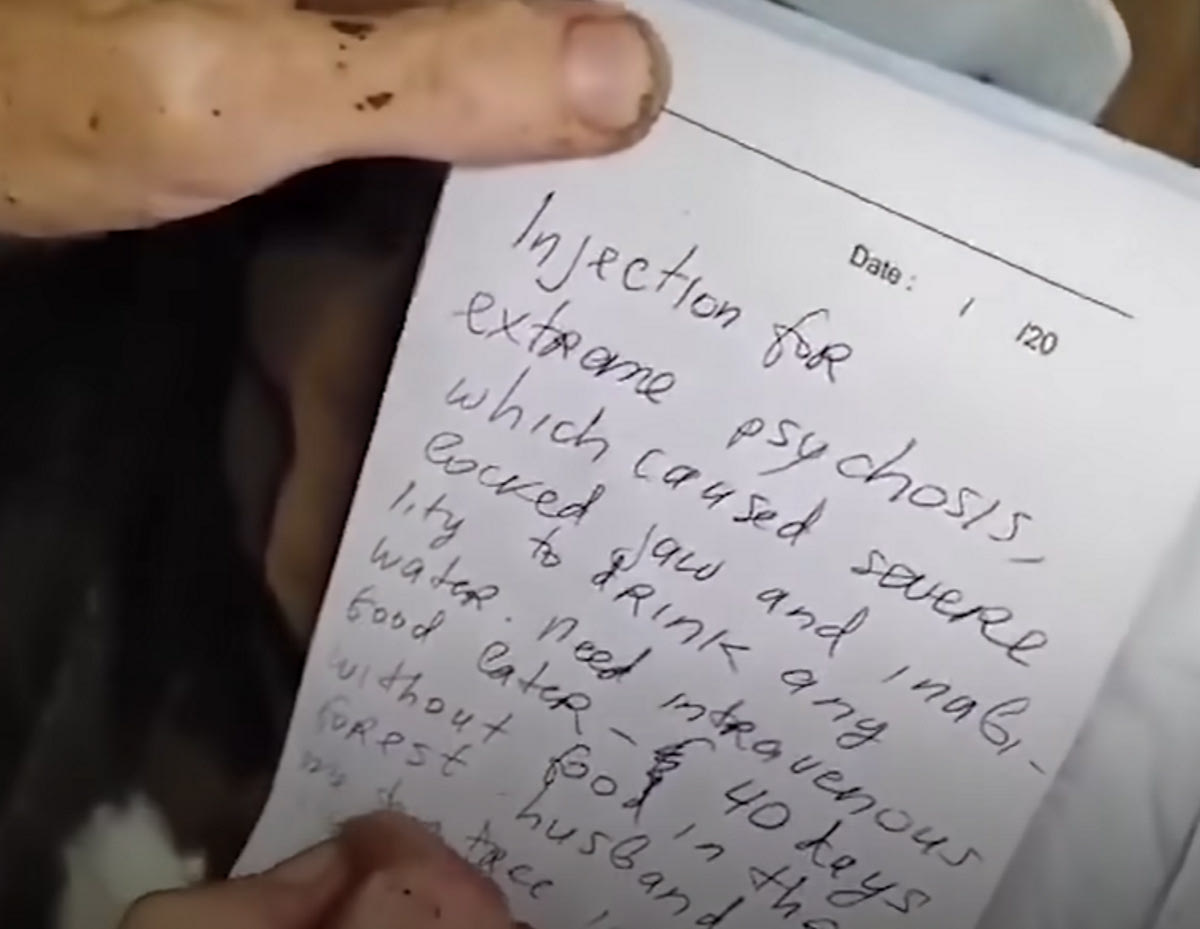 Date: / /20
Injection for
extreme psychosis,
which caused severe
locked jaw and inabi-
lity to drink any
water. need intravenous
food later - 40 days
without food in the
forest husband
tree